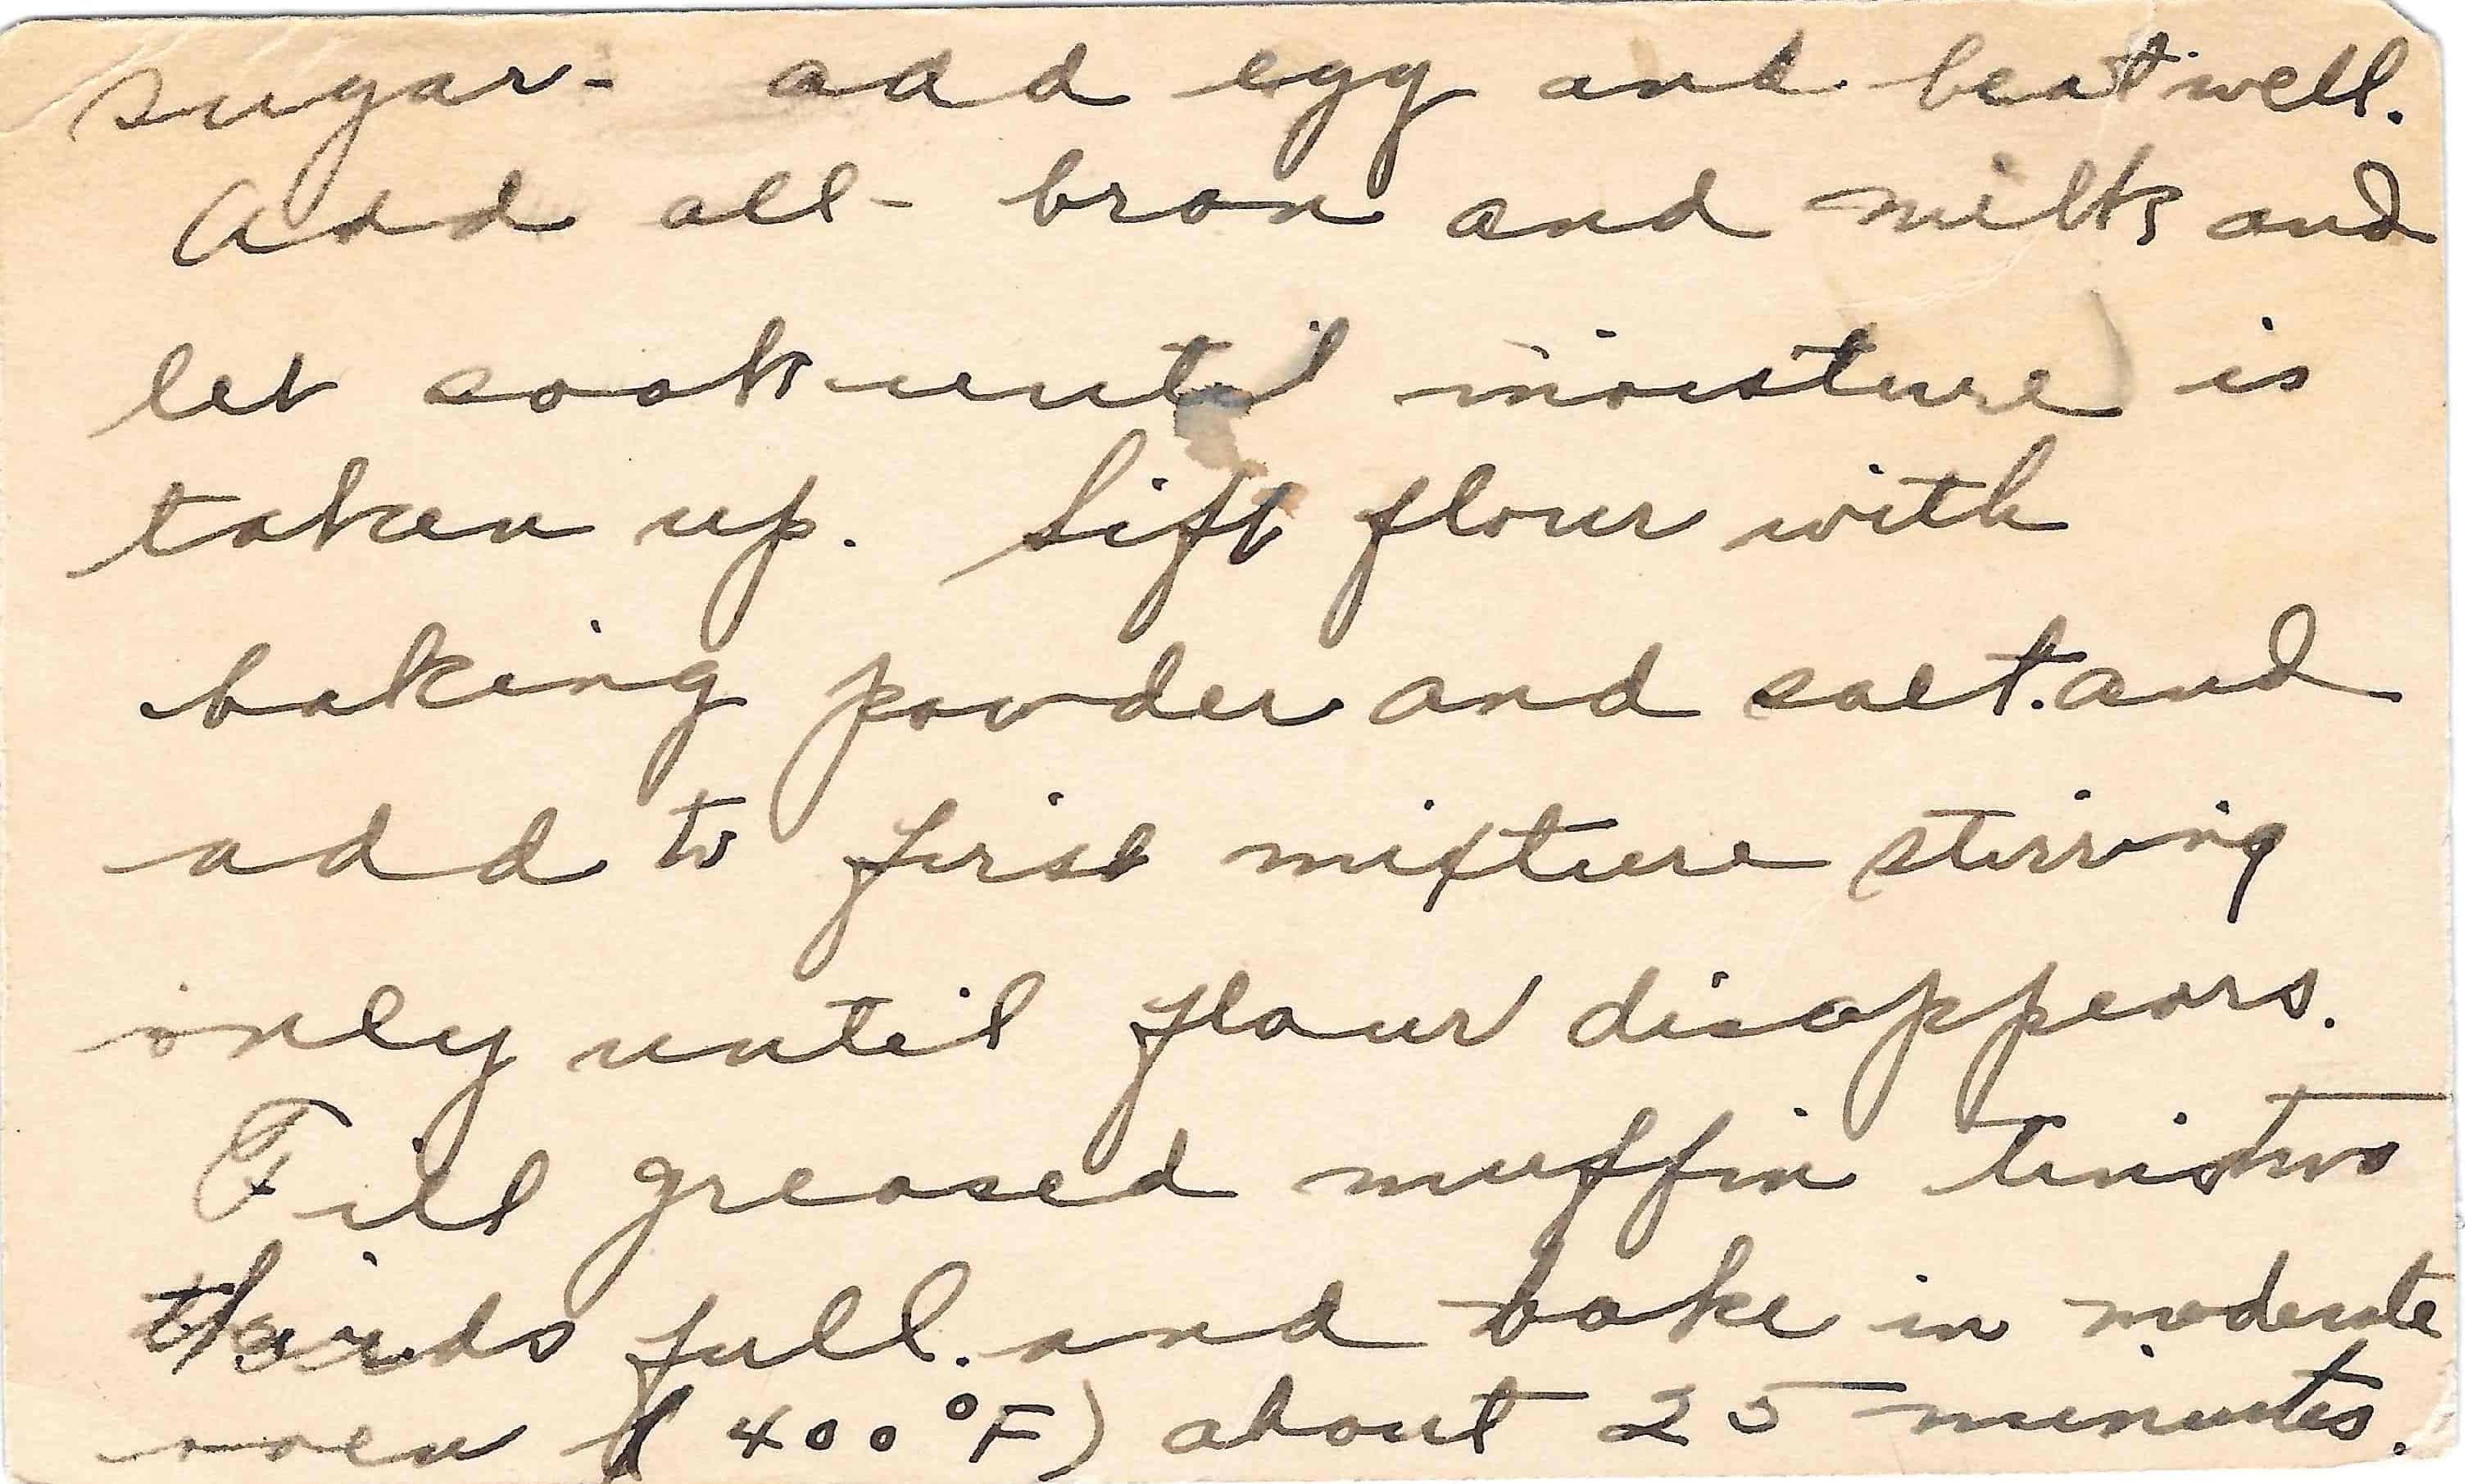 sugar- add egg and beat well.
Add all-bran and milk and
let soak until moisture is
taken up. Sift flour with
baking powder and salt. and
add to first mixture stirring
only until flour disappears.
Fill greased muffin tins two
thirds full. and bake in moderate
oven (400°F) about 25 minutes.